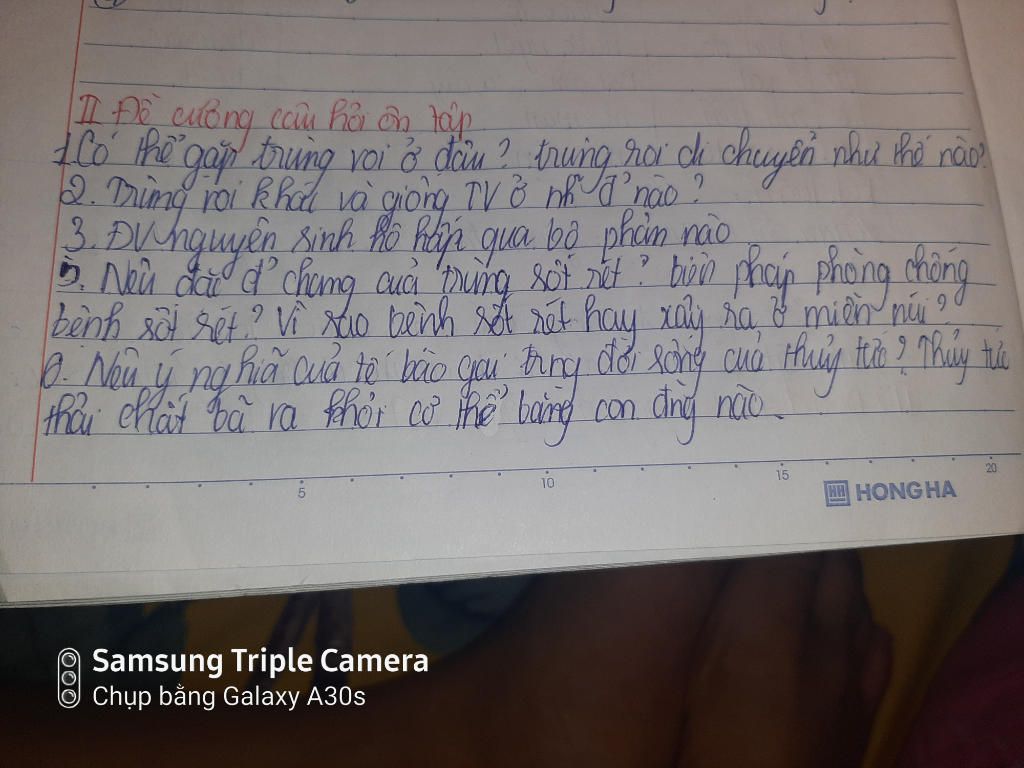 II Đề cương câu hỏi ôn tập
1. Có thể gặp trùng roi ở đâu? trùng roi di chuyển như thế nào?
2. Trùng roi khác và giống TV ở nh~ đ² nào?
3. ĐV nguyên sinh hô hấp qua bộ phận nào
5. Nêu đặc đ² chung của trùng sốt rét? biện pháp phòng chống
bệnh sốt rét? Vì sao bệnh sốt rét hay xảy ra ở miền núi?
6. Nêu ý nghĩa của tế bào gai trng đời sống của thủy tức? Thủy tức
thải chất bã ra khỏi cơ thể bằng con đng nào
5 10 15 20
HH HONG HA
Samsung Triple Camera
Chụp bằng Galaxy A30s